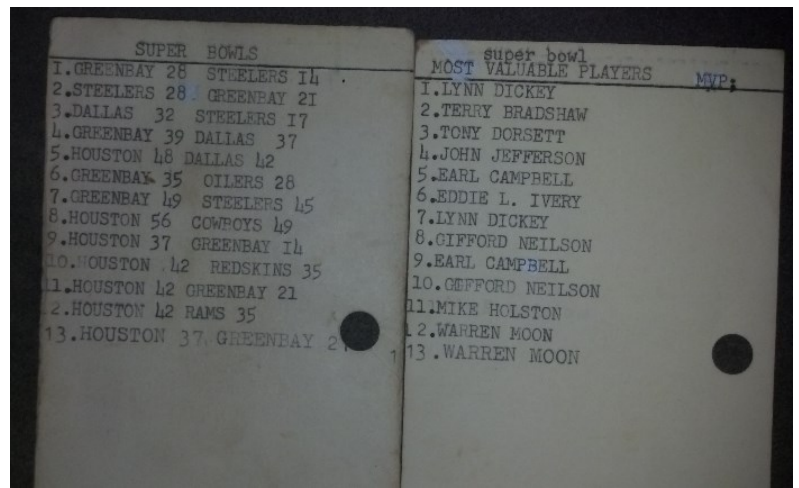 SUPER BOWLS
I.GREENBAY 28 STEELERS I4
2.STEELERS 28 GREENBAY 2I
3.DALLAS 32 STEELERS I7
4.GREENBAY 39 DALLAS 37
5.HOUSTON 48 DALLAS 42
6.GREENBAY 35 OILERS 28
7.GREENBAY 49 STEELERS 45
8.HOUSTON 56 COWBOYS 49
9.HOUSTON 37 GREENBAY I4
10.HOUSTON 42 REDSKINS 35
11.HOUSTON 42 GREENBAY 21
12.HOUSTON 42 RAMS 35
13.HOUSTON 37 GREENBAY
super bowl
MOST VALUABLE PLAYERS MVP;
I.LYNN DICKEY
2.TERRY BRADSHAW
3.TONY DORSETT
4.JOHN JEFFERSON
5.EARL CAMPBELL
6.EDDIE L. IVERY
7.LYNN DICKEY
8.GIFFORD NEILSON
9.EARL CAMPBELL
10.GIFFORD NEILSON
11.MIKE HOLSTON
12.WARREN MOON
13.WARREN MOON